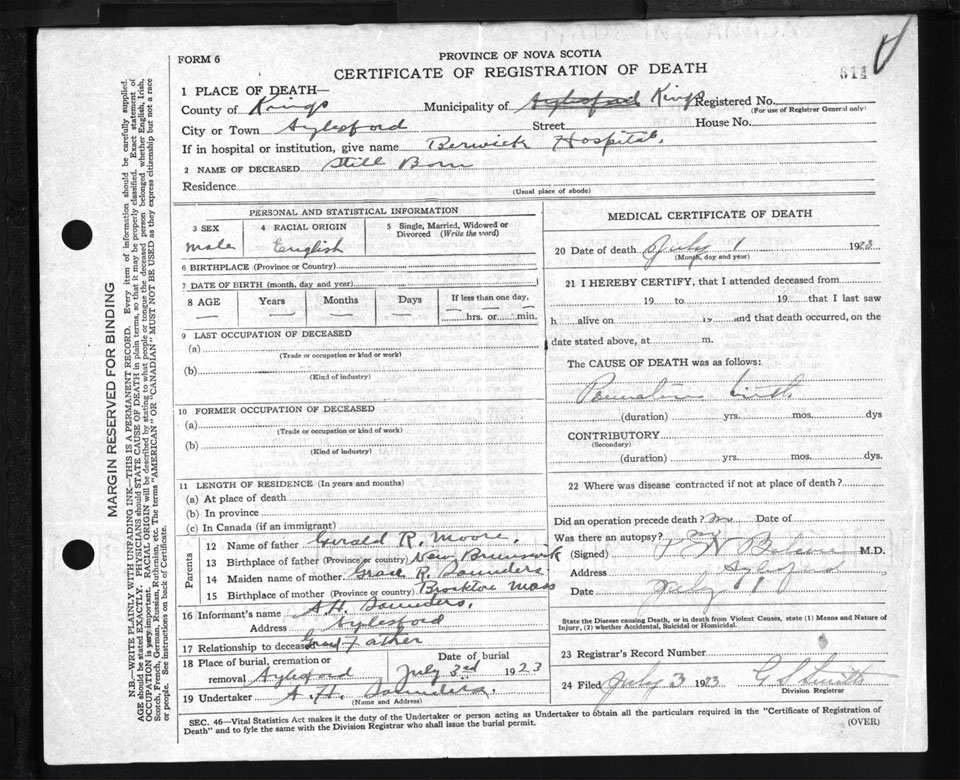 FORM 6
PROVINCE OF NOVA SCOTIA
CERTIFICATE OF REGISTRATION OF DEATH
1 PLACE OF DEATH—
County of Kings Municipality of Aylesford Kings Registered No.
(For use of Registrar General only)
City or Town Aylesford Street House No.
If in hospital or institution, give name Berwick Hospital.
2 NAME OF DECEASED Still Born
Residence
(Usual place of abode)
PERSONAL AND STATISTICAL INFORMATION
3 SEX 4 RACIAL ORIGIN 5 Single, Married, Widowed or Divorced (Write the word)
male English
6 BIRTHPLACE (Province or Country)
7 DATE OF BIRTH (month, day and year)
8 AGE Years Months Days If less than one day,
hrs. or min.
9 LAST OCCUPATION OF DECEASED
(a)
(Trade or occupation or kind or work)
(b)
(Kind of industry)
10 FORMER OCCUPATION OF DECEASED
(a)
(Trade or occupation or kind of work)
(b)
(Kind of industry)
11 LENGTH OF RESIDENCE (In years and months)
(a) At place of death
(b) In province
(c) In Canada (if an immigrant)
Parents
12 Name of father Gerald R. Moore.
13 Birthplace of father (Province or country) New Brunswick
14 Maiden name of mother Grace R. Saunders
15 Birthplace of mother (Province or Country) Brockton Mass
16 Informant's name A.H. Saunders.
Address Aylesford
17 Relationship to deceased Grand Father
18 Place of burial, cremation or removal Aylesford
Date of burial July 3rd 1923
19 Undertaker A. H. Saunders.
(Name and Address)
MEDICAL CERTIFICATE OF DEATH
20 Date of death July 1 1923
(Month, day and year)
21 I HEREBY CERTIFY, that I attended deceased from
19 to 19 that I last saw
h alive on 19 and that death occurred, on the
date stated above, at m.
The CAUSE OF DEATH was as follows:
Premature birth
(duration) yrs. mos. dys
CONTRIBUTORY
(Secondary)
(duration) yrs. mos. dys.
22 Where was disease contracted if not at place of death?
Did an operation precede death? no Date of
Was there an autopsy? no
(Signed) M.D.
Address Aylesford
Date July
State the Disease causing Death, or in death from Violent Causes, state (1) Means and Nature of Injury, (2) whether Accidental, Suicidal or Homicidal.
23 Registrar's Record Number
24 Filed July 3 1923 G S Smith
Division Registrar
SEC. 46—Vital Statistics Act makes it the duty of the Undertaker or person acting as Undertaker to obtain all the particulars required in the "Certificate of Registration of
Death" and to fyle the same with the Division Registrar who shall issue the burial permit. (OVER)
MARGIN RESERVED FOR BINDING
N.B.—WRITE PLAINLY WITH UNFADING INK—THIS IS A PERMANENT RECORD. Every item of information should be carefully supplied.
AGE should be stated EXACTLY. PHYSICIANS should STATE CAUSE OF DEATH in plain terms, so that it may be properly classified. Exact statement of
OCCUPATION is very important. RACIAL ORIGIN will be described by stating to what people or tongue the deceased person belonged whether English, Irish,
Scotch, French, German, Russian, Ruthenian, etc. The terms "AMERICAN" OR "CANADIAN" MUST NOT BE USED as they express citizenship but not a race
or people. See instructions on back of Certificate.